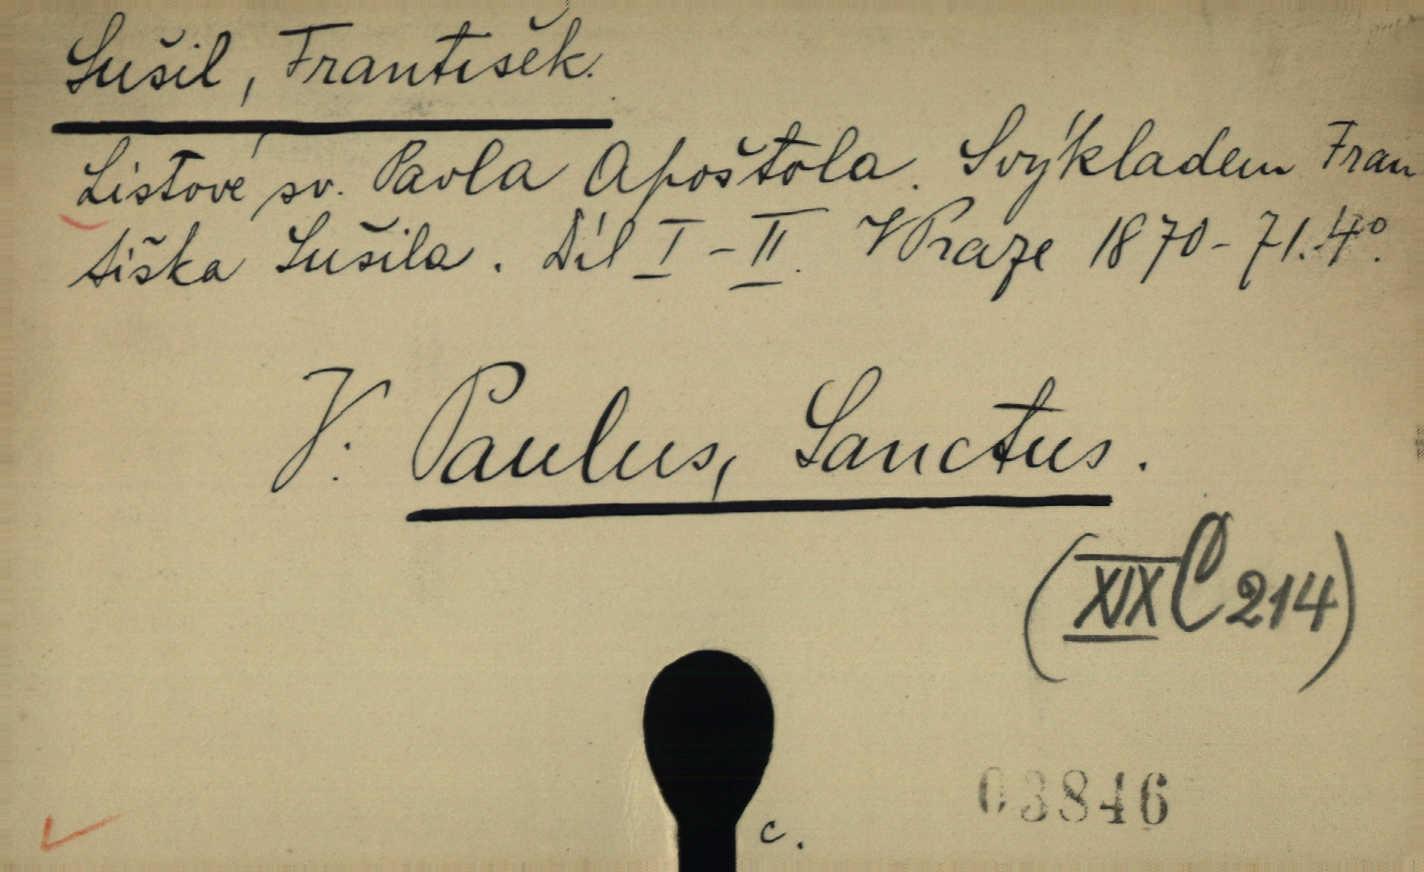 Sušil, František.
Listové sv. Pavla Apoštola. Svýkladem Fran
tiška Sušila. Díl I-II. V Praze 1870-71. 4°.
V. Paulus, Sanctus.
(XIX C 214)
03846
c.